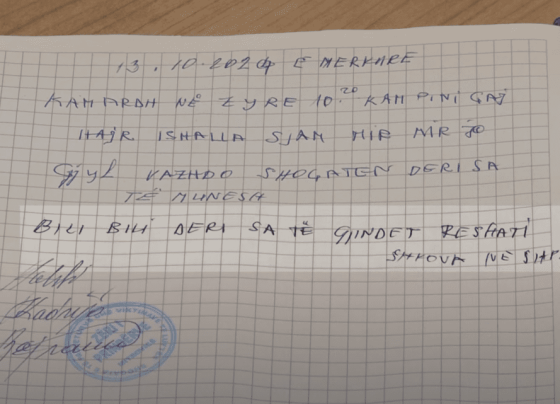 13.10.2024 E MERKURE
KAM ARDH NË ZYRE 10.20 KAM PINI ÇAJ
HAJR ISHALLA SJAM MIR MIR JO
Gjyl VAZHDO SHOQATEN DERI SA
TË MUNESH
BILI BILI DERI SA TË GJINDET RESHATI
SHKOVA NË